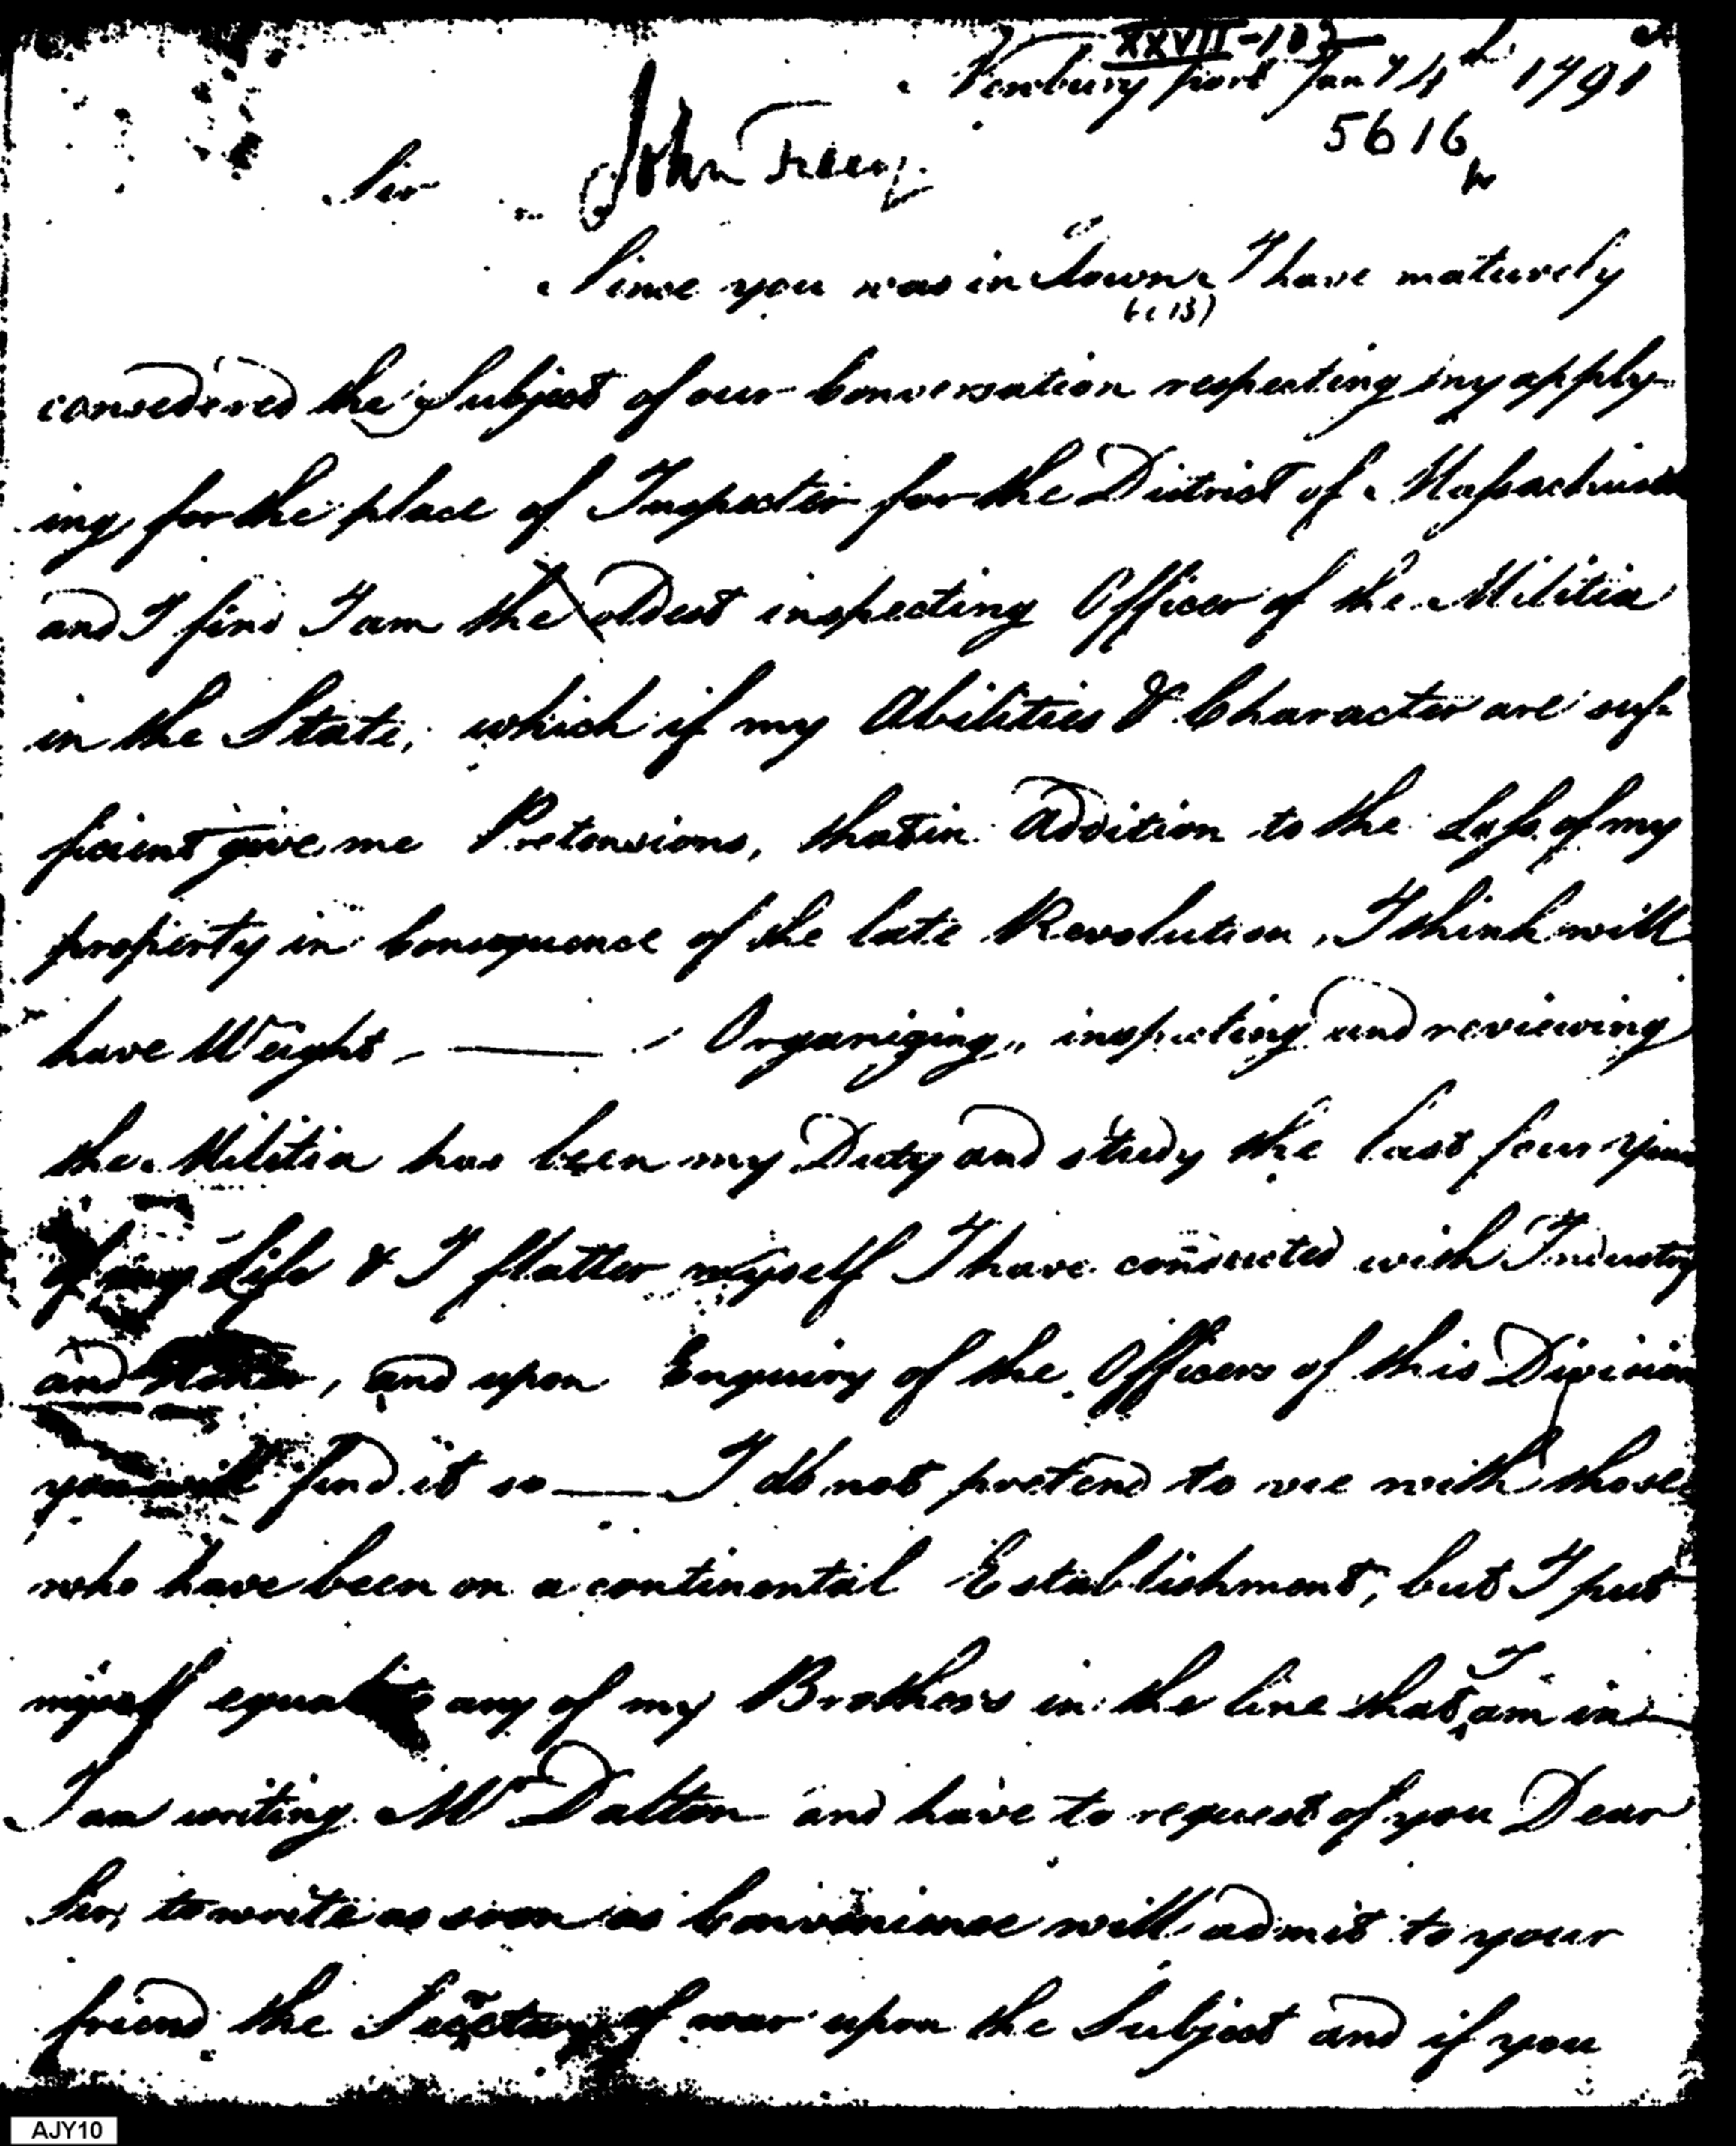 XXVII-107
Newbury port Jany 4th 1791
5616
Sir John
Since you was in Town I have maturely
considered the Subject of our Conversation respecting my apply-
ing for the place of Inspector for the District of Massachusetts
and I find I am the oldest inspecting Officer of the Militia
in the State, which if my Abilities & Character are suf-
ficient give me Pretensions, that in Addition to the Loss of my
property in Consequence of the late Revolution, I think will
have Weight, — Organizing, inspecting and reviewing
the Militia has been my Duty and study the last four years
of my Life & I flatter myself I have conducted with Industry
and , and upon Enquiry of the Officers of this Division
you will find it so — I do not pretend to vie with those
who have been on a continental Establishment, but I put
myself equal to any of my Brothers in the line that I am in —
I am writing Mr Dalton and have to request of you Dear
Sir, to write as soon as Convenience will admit to your
friend the Secretary of war upon the Subject and if you
AJY10